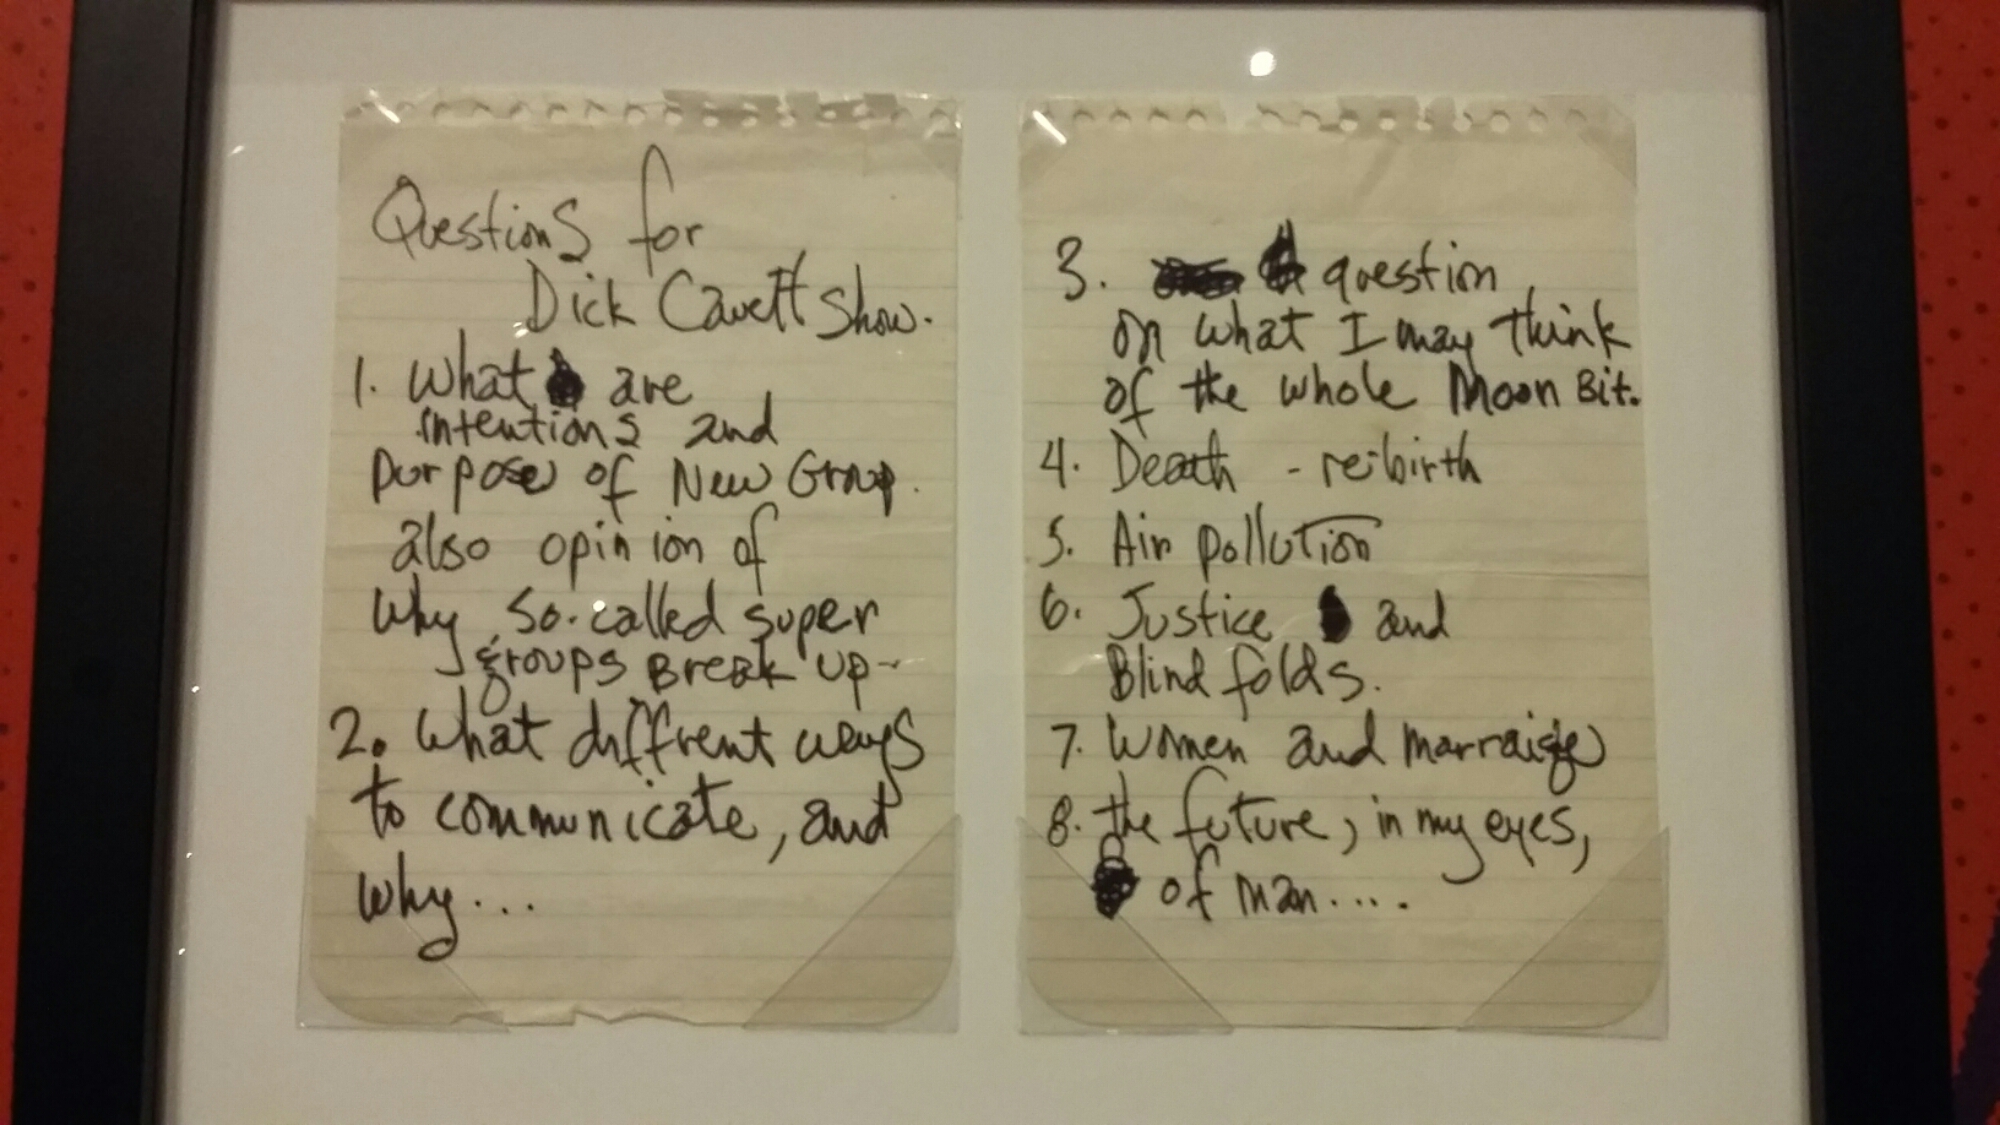 Questions for
Dick Cavett Show.
1. What are
intentions and
purpose of New Group.
also opinion of
why so-called super
groups Break up-
2. what diffrent ways
to communicate, and
why...
3. question
on what I may think
of the whole Moon Bit.
4. Death - re-birth
5. Air pollution
6. Justice and
Blind folds.
7. Women and marraige
8. the future, in my eyes,
of man....